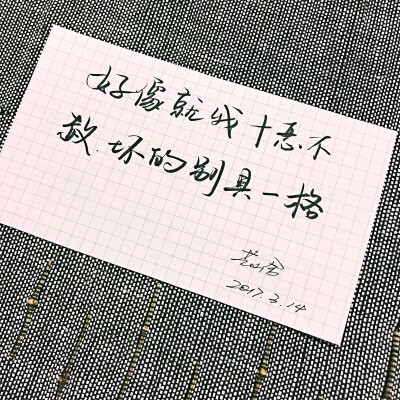 好像就我十恶不
赦.坏的别具一格
2017.3.14